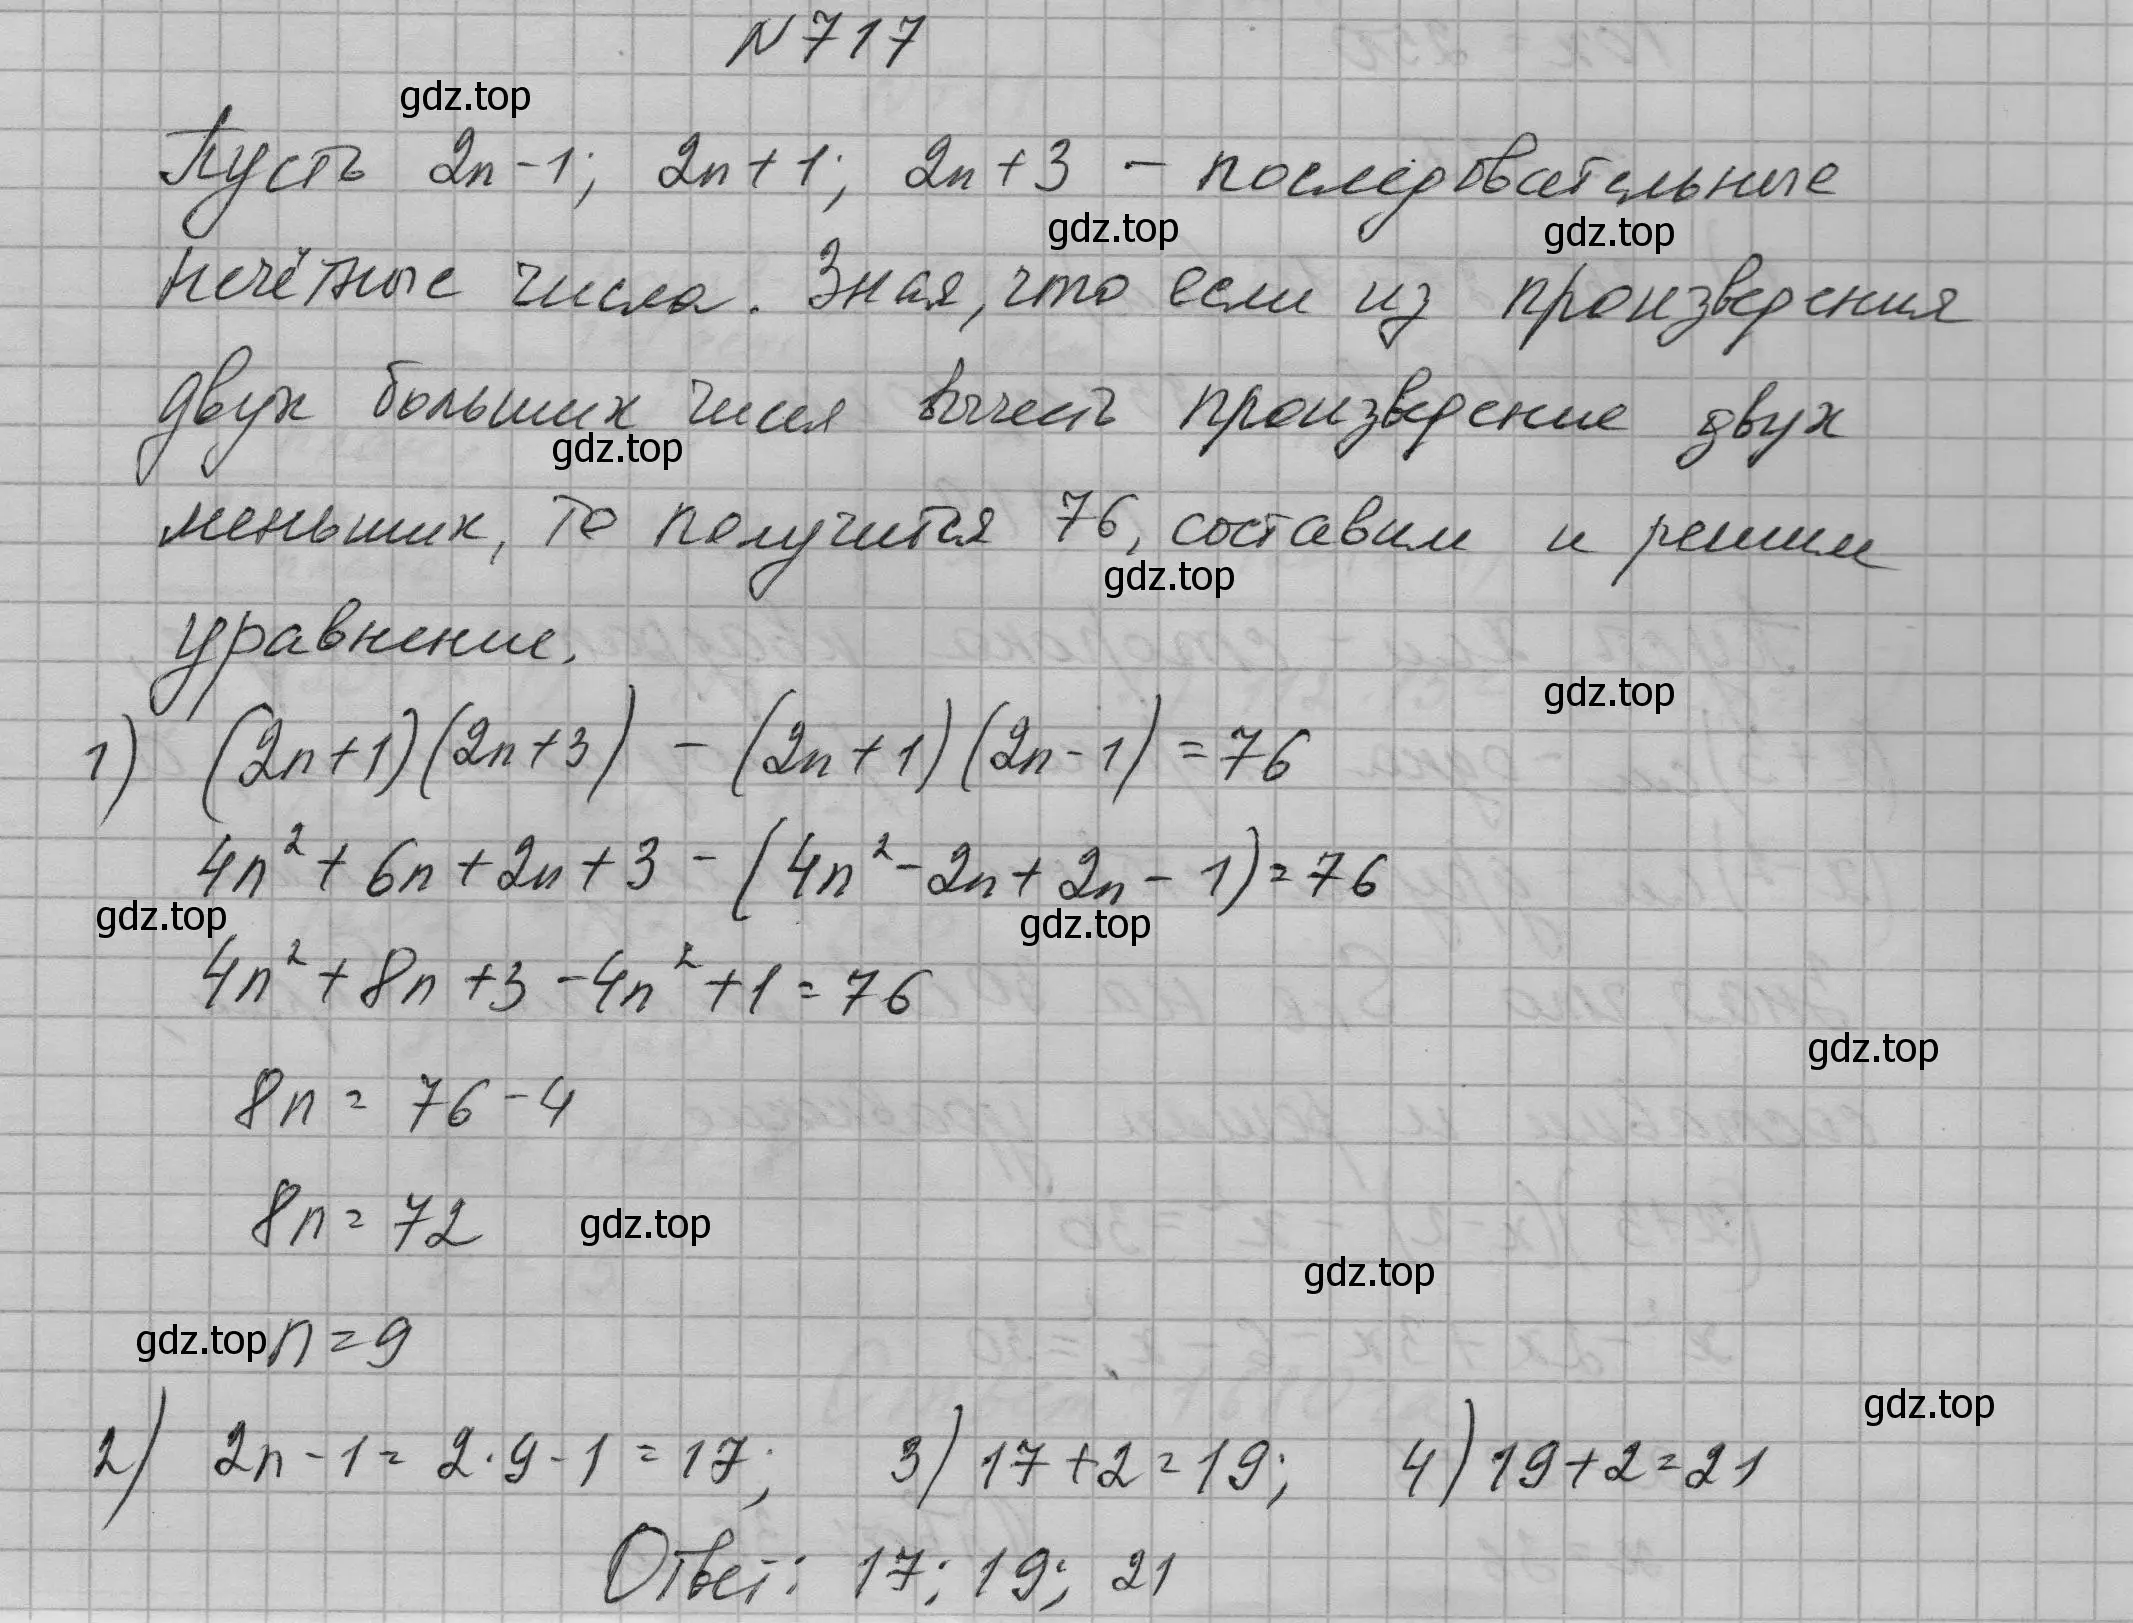 N 717
gdz.top
Пусть 2n-1; 2n+1; 2n+3 - последовательные
gdz.top gdz.top
нечётные числа. Зная, что если из произведения
двух больших чисел вычесть произведение двух
gdz.top
меньших, то получится 76, составим и решим
gdz.top
уравнение.
gdz.top
1) (2n+1)(2n+3) - (2n+1)(2n-1) = 76
4n² + 6n + 2n + 3 - (4n² - 2n + 2n - 1) = 76
gdz.top gdz.top
4n² + 8n + 3 - 4n² + 1 = 76
gdz.top
8n = 76 - 4
8n = 72
gdz.top
gdz.top
gdz.top n = 9
gdz.top
2) 2n - 1 = 2·9 - 1 = 17; 3) 17 + 2 = 19; 4) 19 + 2 = 21
Ответ: 17; 19; 21